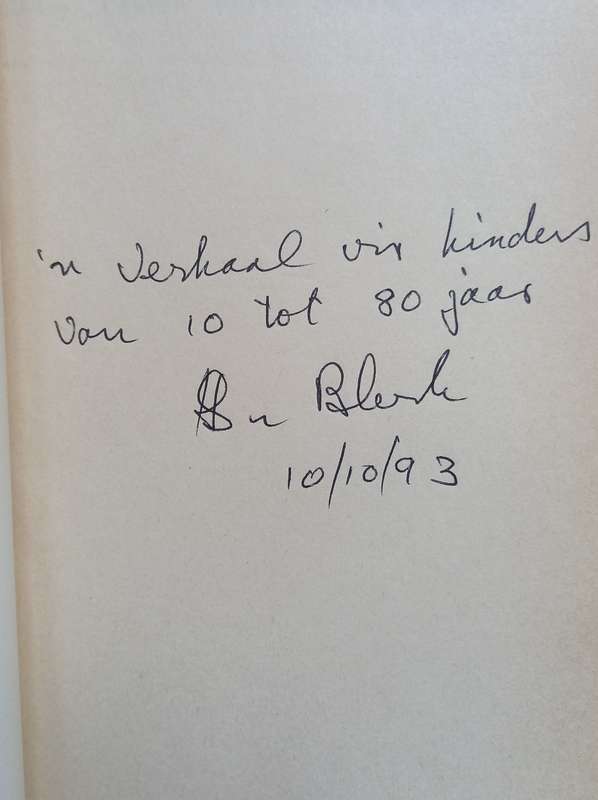 'n Verhaal vir kinders
van 10 tot 80 jaar
Blerk
10/10/93